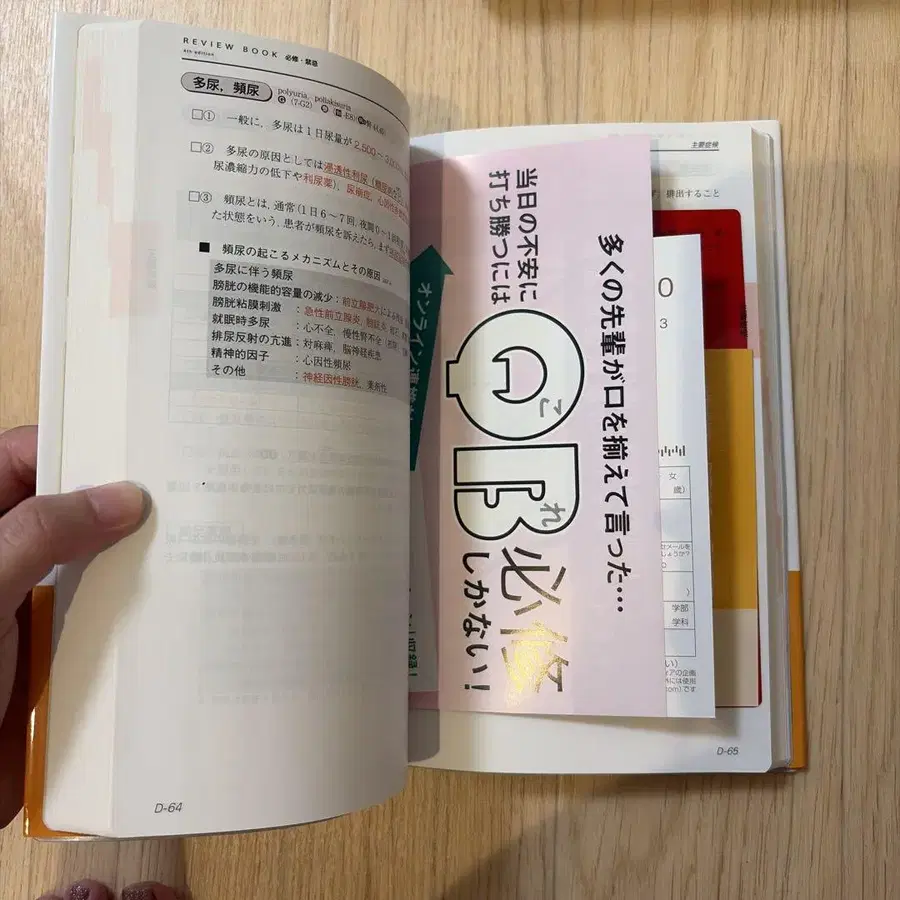 REVIEW BOOK 必修・禁忌
4th edition
多尿，頻尿
polyuria, pollakisuria
□① 一般に，多尿は1日尿量が2,500～3,0
□② 多尿の原因としては浸透性利尿
尿濃縮力の低下や利尿薬），尿崩症，心因性
□③ 頻尿とは，通常（1日6～7回，夜間0～1回
た状態をいう．患者が頻尿を訴えたら，まず
■ 頻尿の起こるメカニズムとその原因
多尿に伴う頻尿
膀胱の機能的容量の減少：前立腺肥大による
膀胱粘膜刺激 ：急性前立腺炎，膀胱炎
就眠時多尿 ：心不全，慢性腎不全
排尿反射の亢進：対麻痺，脳神経疾患
精神的因子 ：心因性頻尿
その他 ：神経因性膀胱，薬剤性
D-64
主要症候
排出すること
多くの先輩が口を揃えて言った…
当日の不安に
打ち勝つには
QB必修
これ
しかない！
オンライン連携
収録！
0
3
女
歳）
）
学部
学科
い）
ィアの企画
には使用
com）です
D-65